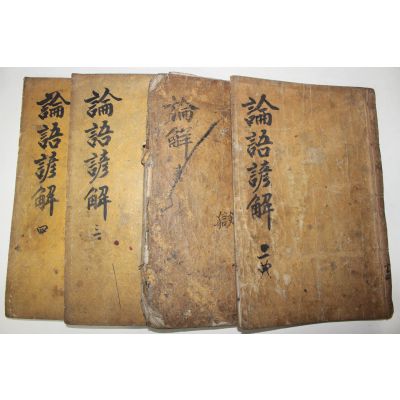 論語諺解 二
論解
論語諺解 三
論語諺解 四